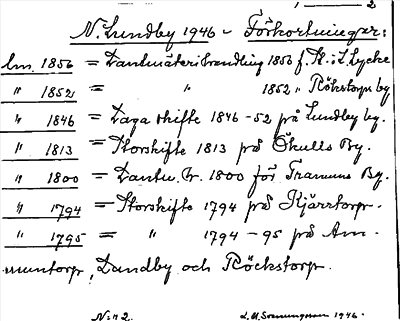 2
N. Lundby 1946 - Förkortningar:
lm. 1856 = Lantmäterihandling 1856 f. K. i L. Lycke
" 1852 = " 1852 " Röckstorp by
" 1846 = Laga skifte 1846-52 på Lundby by.
" 1813 = Storskifte 1813 på Ökulls By.
" 1800 = Lantm. hr. 1800 för Tramuns By.
" 1794 = Storskifte 1794 på Kjärrtorp.
" 1795 = " 1794-95 på Am-
muntorp, Lundby och Röckstorp.
N:r 2. 1946.